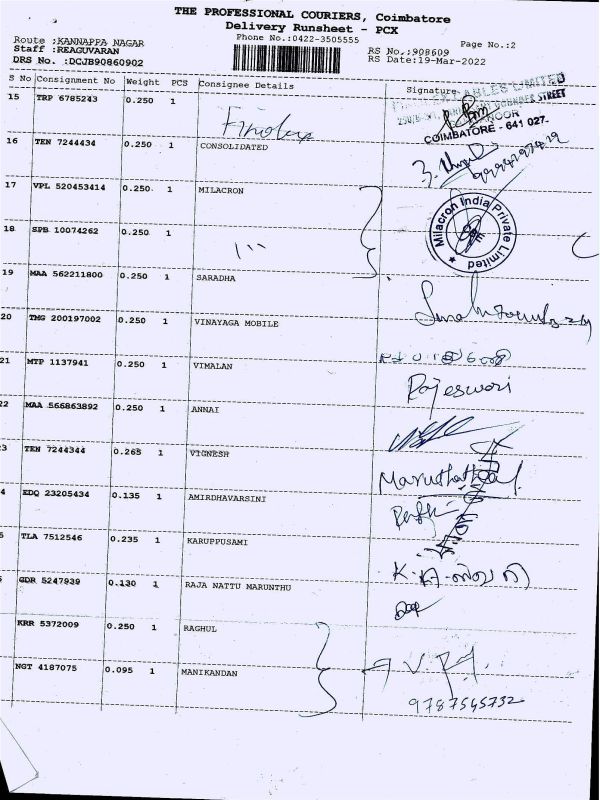 THE PROFESSIONAL COURIERS, Coimbatore
Delivery Runsheet - PCX
Phone No.:0422-3505555
Page No.:2
Route :KANNAPPA NAGAR
Staff :REAGUVARAN
DRS No. :DCJB90860902
RS No.:908609
RS Date:19-Mar-2022
S No Consignment No Weight PCS Consignee Details Signature
15 TRP 6785243 0.250 1
Finolex
CABLES LIMITED
STREET
COIMBATORE - 641 027.
16 TEN 7244434 0.250 1 CONSOLIDATED
17 VPL 520453414 0.250 1 MILACRON
Milacron India Private Limited
18 SPB 10074262 0.250 1
19 MAA 562211800 0.250 1 SARADHA
20 TMG 200197002 0.250 1 VINAYAGA MOBILE
21 MTP 1137941 0.250 1 VIMALAN
Rajeswari
22 MAA 566863892 0.250 1 ANNAI
3 TEN 7244344 0.265 1 VIGNESH
Maruthathal
4 EDQ 23205434 0.135 1 AMIRDHAVARSINI
5 TLA 7512546 0.235 1 KARUPPUSAMI
GDR 5247939 0.130 1 RAJA NATTU MARUNTHU
KRR 5372009 0.250 1 RAGHUL
NGT 4187075 0.095 1 MANIKANDAN
9787545732